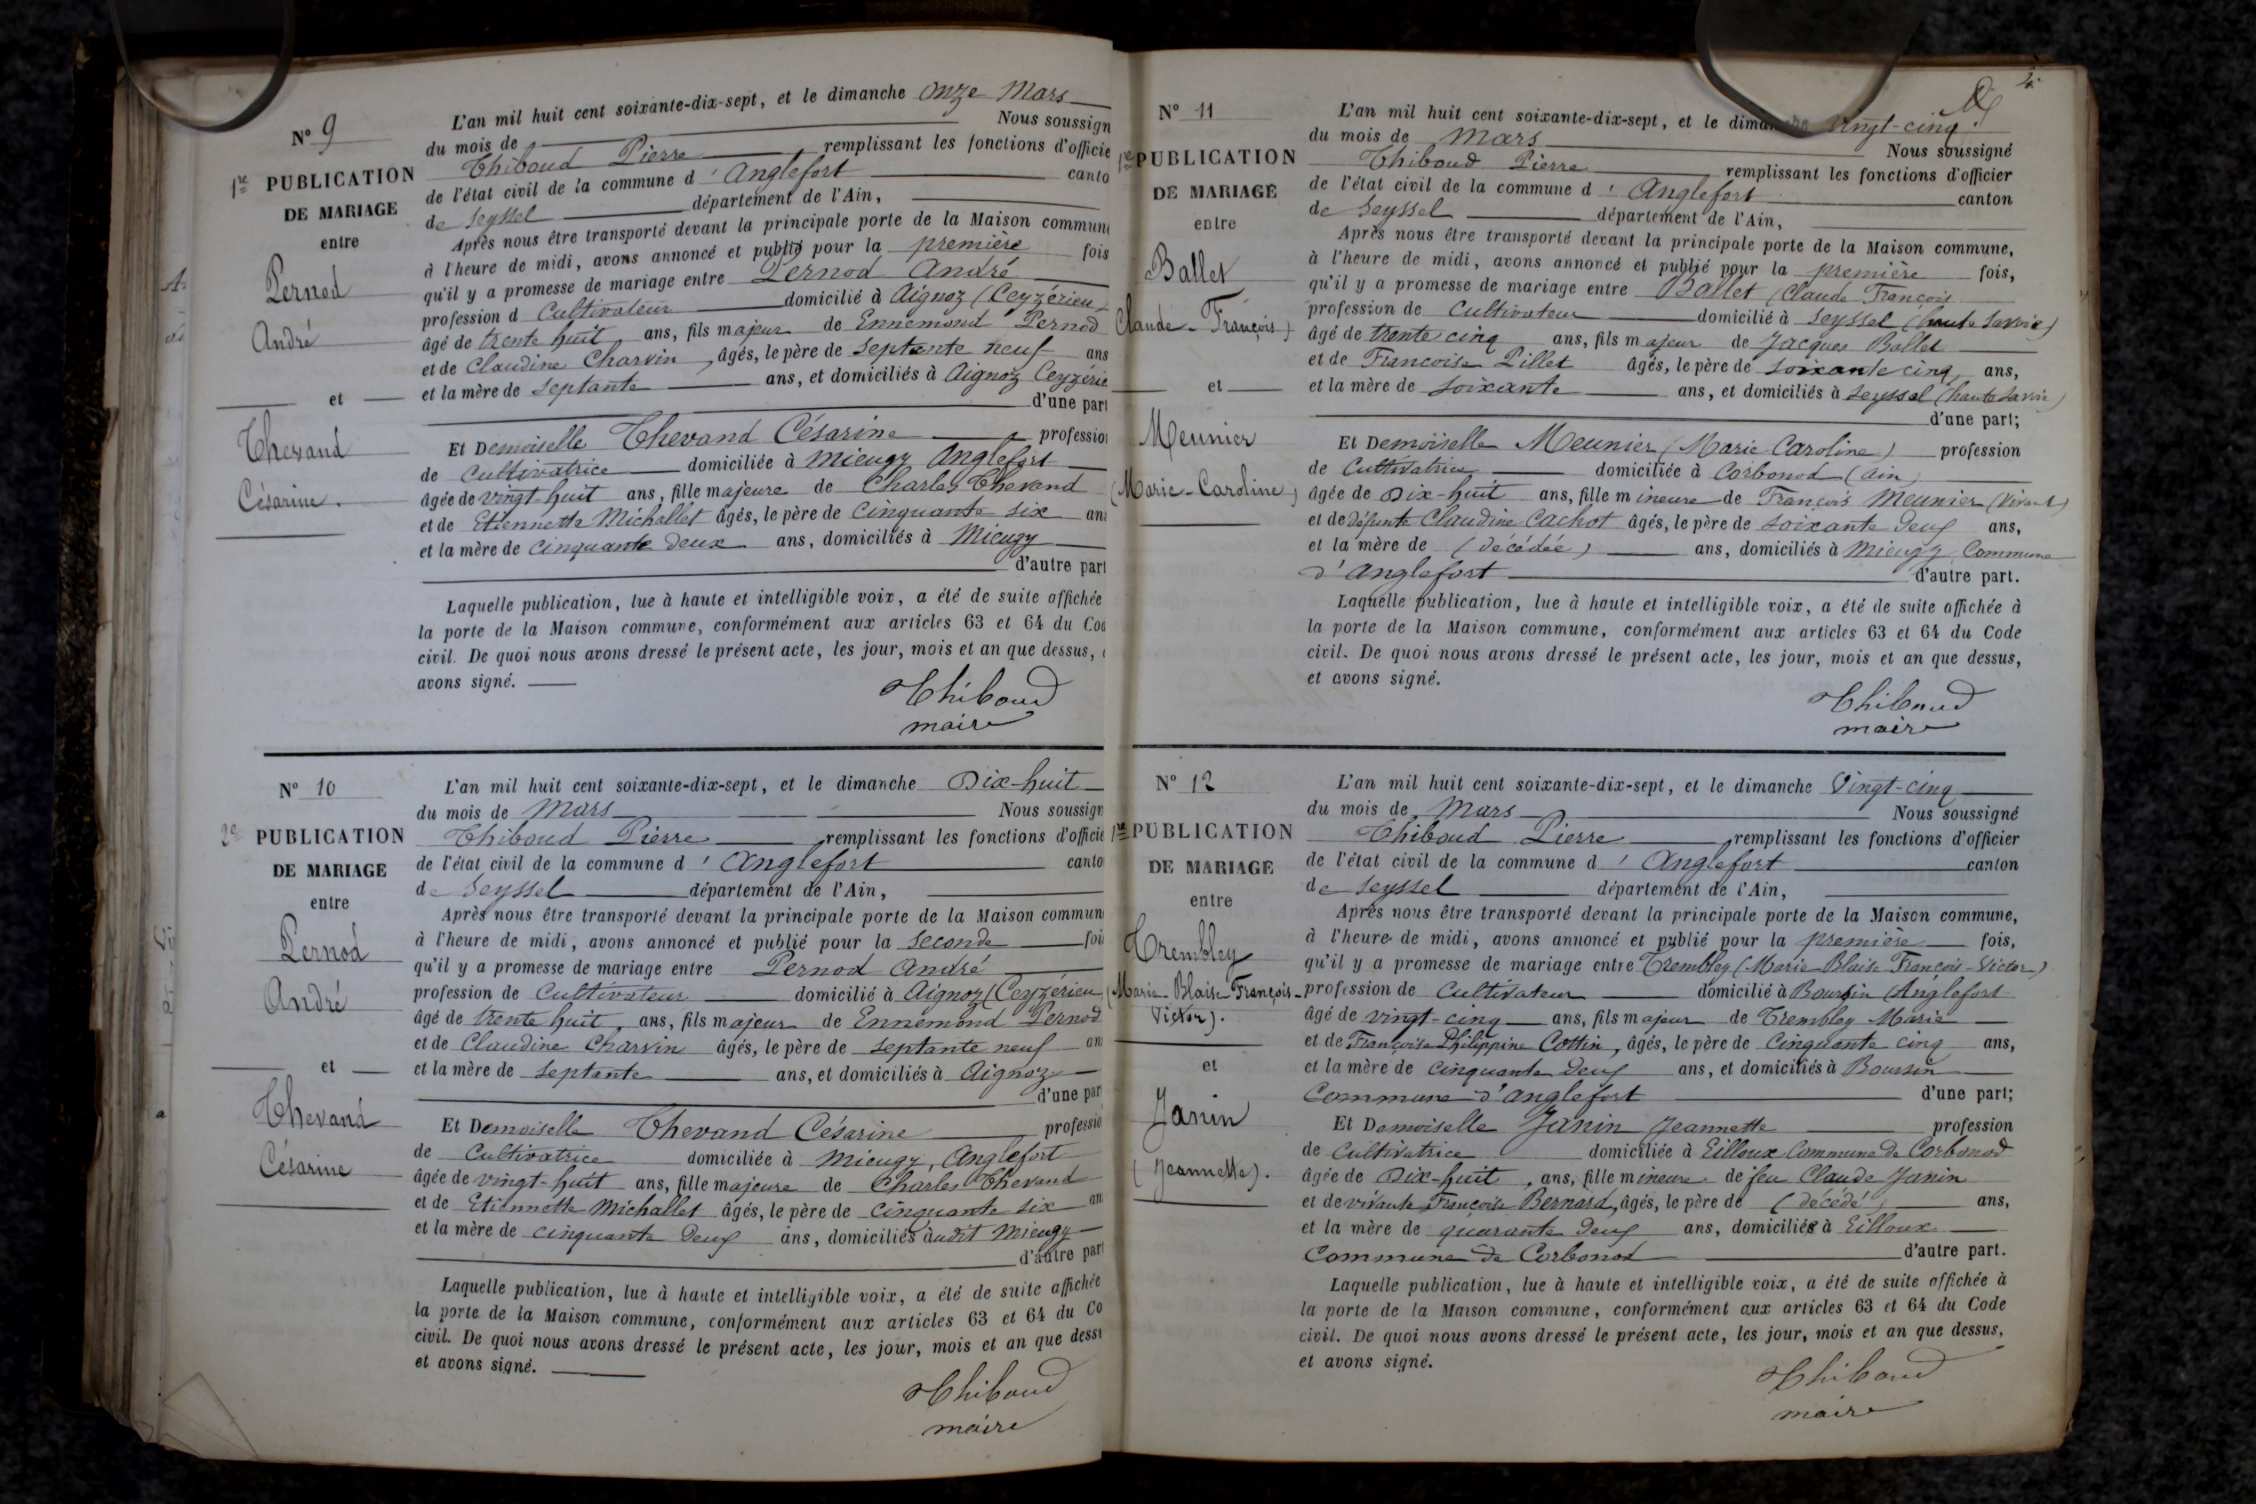 N° 9
1re PUBLICATION
DE MARIAGE
entre
Pernod
André
et
Thevand
Césarine.
L'an mil huit cent soixante-dix-sept, et le dimanche onze Mars
du mois de Nous soussign
Thiboud Pierre remplissant les fonctions d'officie
de l'état civil de la commune d' Anglefort canto
de Seyssel département de l'Ain,
Après nous être transporté devant la principale porte de la Maison commun
à l'heure de midi, avons annoncé et publié pour la première fois
qu'il y a promesse de mariage entre Pernod André
profession d Cultivateur domicilié à Aignoz (Ceyzérieu
âgé de trente huit ans, fils majeur de Ennemond Pernod
et de Claudine Charvin, âgés, le père de septante neuf ans
et la mère de septante ans, et domiciliés à Aignoz Ceyzérie
d'une part
Et Demoiselle Thevand Césarine profession
de Cultivatrice domiciliée à Mieugy Anglefort
âgée de vingt huit ans, fille majeure de Charles Thevand
et de Etiennette Michallet âgés, le père de cinquante six ans
et la mère de cinquante deux ans, domiciliés à Mieugy
d'autre part
Laquelle publication, lue à haute et intelligible voix, a été de suite affichée
la porte de la Maison commune, conformément aux articles 63 et 64 du Cod
civil. De quoi nous avons dressé le présent acte, les jour, mois et an que dessus,
avons signé.
Thiboud
maire
N° 10
2e PUBLICATION
DE MARIAGE
entre
Pernod
André
et
Thevand
Césarine
L'an mil huit cent soixante-dix-sept, et le dimanche Dix-huit
du mois de Mars Nous soussign
Thiboud Pierre remplissant les fonctions d'officie
de l'état civil de la commune d' Anglefort canto
de Seyssel département de l'Ain,
Après nous être transporté devant la principale porte de la Maison commun
à l'heure de midi, avons annoncé et publié pour la seconde foi
qu'il y a promesse de mariage entre Pernod André
profession de Cultivateur domicilié à Aignoz (Ceyzérieu
âgé de trente huit, ans, fils majeur de Ennemond Pernod
et de Claudine Charvin âgés, le père de septante neuf an
et la mère de septante ans, et domiciliés à Aignoz
d'une par
Et Demoiselle Thevand Césarine professio
de Cultivatrice domiciliée à Mieugy, Anglefort
âgée de vingt-huit ans, fille majeure de Charles Thevand
et de Etiennette Michallet âgés, le père de cinquante six an
et la mère de cinquante deux ans, domiciliés àudit Mieugy
d'autre part
Laquelle publication, lue à haute et intelligible voix, a été de suite affichée
la porte de la Maison commune, conformément aux articles 63 et 64 du Co
civil. De quoi nous avons dressé le présent acte, les jour, mois et an que dess
et avons signé.
Thiboud
maire
N° 11
1re PUBLICATION
DE MARIAGE
entre
Ballet
Claude-François)
et
Meunier
(Marie-Caroline)
L'an mil huit cent soixante-dix-sept, et le dimanche vingt-cinq
du mois de Mars Nous soussigné
Thiboud Pierre remplissant les fonctions d'officier
de l'état civil de la commune d' Anglefort canton
de Seyssel département de l'Ain,
Après nous être transporté devant la principale porte de la Maison commune,
à l'heure de midi, avons annoncé et publié pour la première fois,
qu'il y a promesse de mariage entre Ballet (Claude François
profession de Cultivateur domicilié à Seyssel (haute Savoie)
âgé de trente cinq ans, fils majeur de Jacques Ballet
et de Francoise Pillet âgés, le père de soixante cinq, ans,
et la mère de soixante ans, et domiciliés à Seyssel (haute Savoie)
d'une part;
Et Demoiselle Meunier (Marie Caroline) profession
de Cultivatrice domiciliée à Corbonod (Ain)
âgée de Dix-huit ans, fille mineure de François Meunier (vivant)
et de défunte Claudine Cachot âgés, le père de soixante deux ans,
et la mère de (décédée) ans, domiciliés à Mieugy Commune
d'Anglefort d'autre part.
Laquelle publication, lue à haute et intelligible voix, a été de suite affichée à
la porte de la Maison commune, conformément aux articles 63 et 64 du Code
civil. De quoi nous avons dressé le présent acte, les jour, mois et an que dessus,
et avons signé.
Thiboud
maire
N° 12
1re PUBLICATION
DE MARIAGE
entre
Trembley
(Marie-Blaise François-
Victor).
et
Janin
(Jeannette).
L'an mil huit cent soixante-dix-sept, et le dimanche Vingt-cinq
du mois de Mars Nous soussigné
Thiboud Pierre remplissant les fonctions d'officier
de l'état civil de la commune d' Anglefort canton
de Seyssel département de l'Ain,
Après nous être transporté devant la principale porte de la Maison commune,
à l'heure de midi, avons annoncé et publié pour la première fois,
qu'il y a promesse de mariage entre Trembley (Marie Blaise François-Victor)
profession de Cultivateur domicilié à Boursin (Anglefort
âgé de vingt-cinq ans, fils majeur de Trembley Marie
et de Françoise Philippine Cottin, âgés, le père de Cinquante cinq ans,
et la mère de cinquante deux ans, et domiciliés à Boursin
Commune d'Anglefort d'une part;
Et Demoiselle Janin Jeannette profession
de Cultivatrice domiciliée à Eilloux Commune de Corbonod
âgée de Dix-huit, ans, fille mineure de feu Claude Janin
et de vivante Francoise Bernard, âgés, le père de (décédé) ans,
et la mère de quarante deux ans, domiciliés à Eilloux
Commune de Corbonod d'autre part.
Laquelle publication, lue à haute et intelligible voix, a été de suite affichée à
la porte de la Maison commune, conformément aux articles 63 et 64 du Code
civil. De quoi nous avons dressé le présent acte, les jour, mois et an que dessus,
et avons signé.
Thiboud
maire